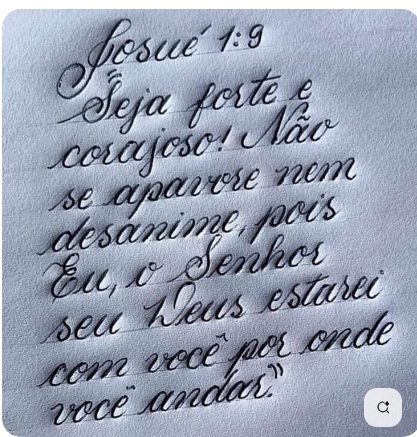 Josué 1:9
"Seja forte e
corajoso! Não
se apavore nem
desanime, pois
Eu, o Senhor
seu Deus estarei
com você por onde
você andar."